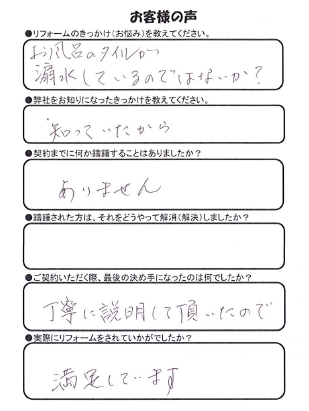 お客様の声
●リフォームのきっかけ(お悩み)を教えてください。
お風呂のタイルから
漏水しているのではないか?
●弊社をお知りになったきっかけを教えてください。
知っていたから
●契約までに何か躊躇することはありましたか?
ありません
●躊躇された方は、それをどうやって解消(解決)しましたか?
●ご契約いただく際、最後の決め手になったのは何でしたか?
丁寧に説明して頂いたので
●実際にリフォームをされていかがでしたか?
満足しています